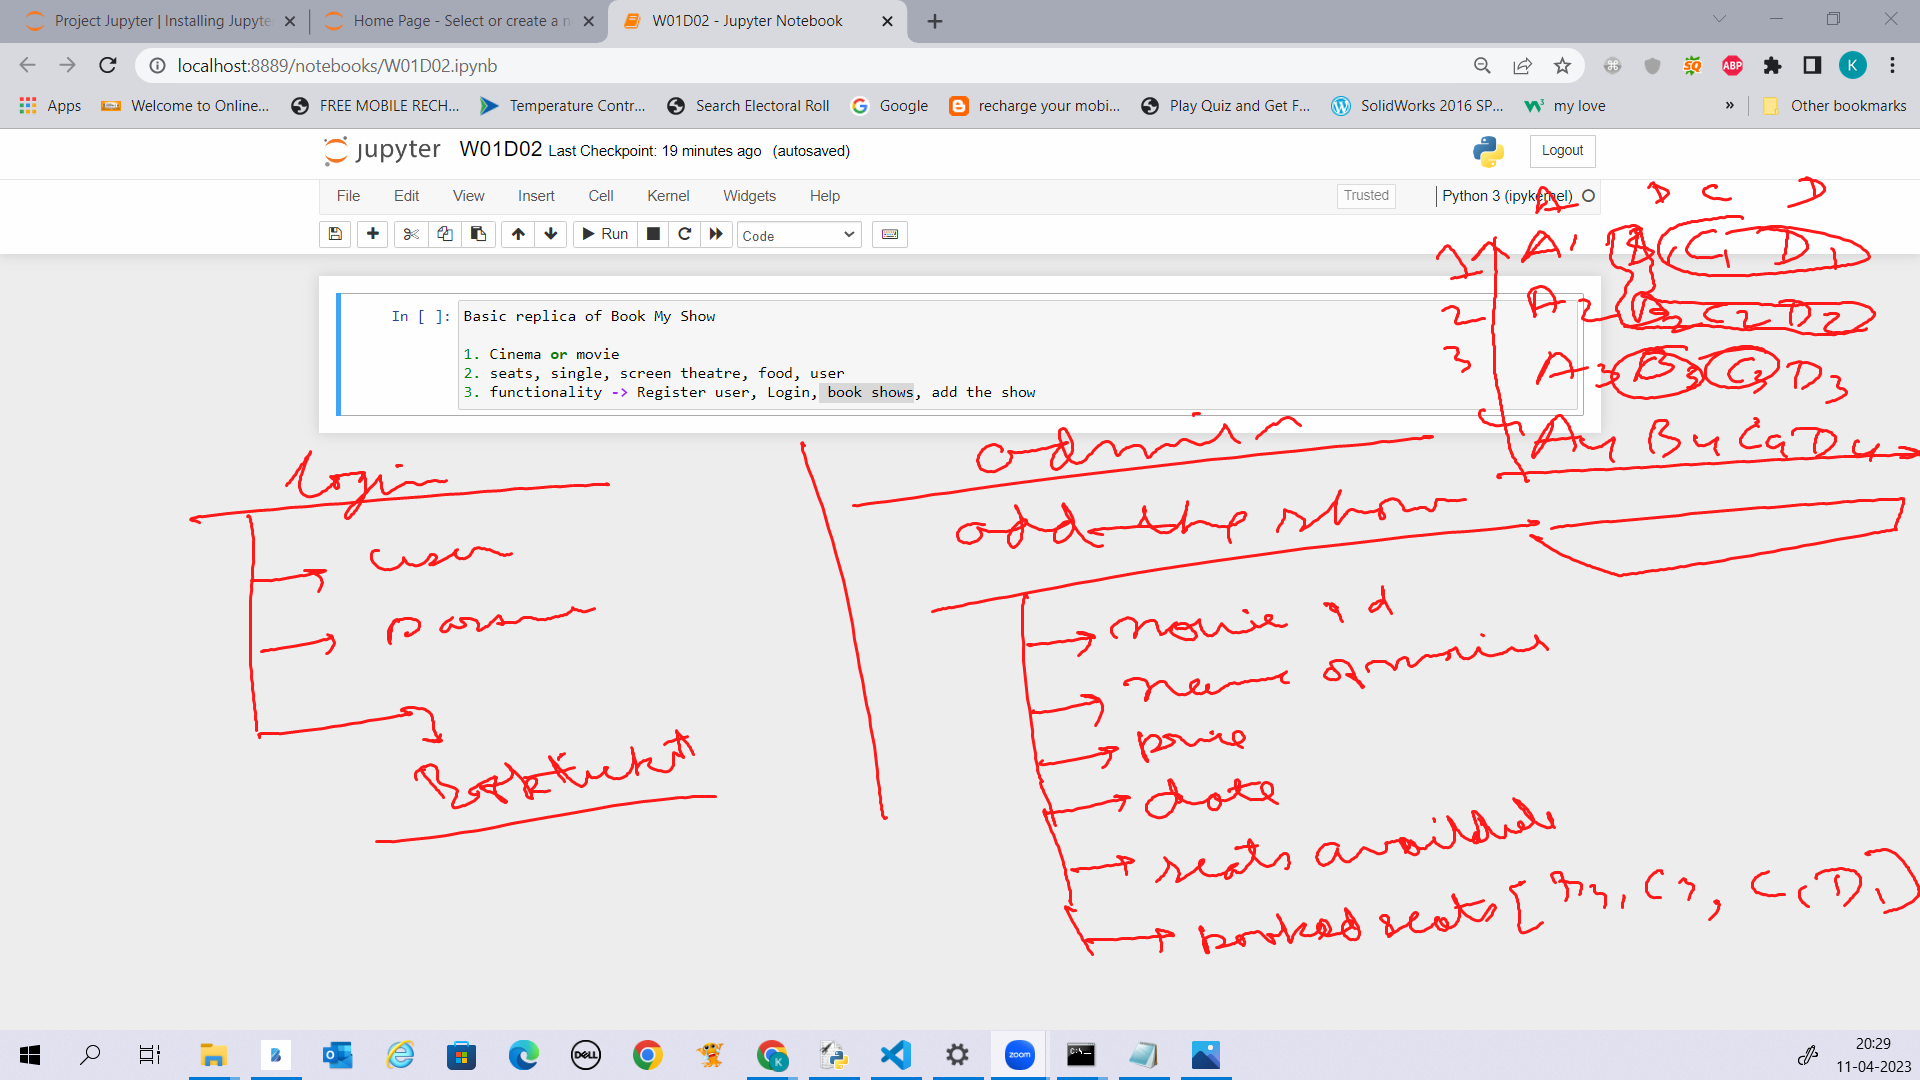 Project Jupyter | Installing Jupyte
Home Page - Select or create a n
W01D02 - Jupyter Notebook
localhost:8889/notebooks/W01D02.ipynb
Apps
Welcome to Online...
FREE MOBILE RECH...
Temperature Contr...
Search Electoral Roll
Google
recharge your mobi...
Play Quiz and Get F...
SolidWorks 2016 SP...
my love
»
Other bookmarks
jupyter W01D02 Last Checkpoint: 19 minutes ago (autosaved)
Logout
File Edit View Insert Cell Kernel Widgets Help
Trusted
Python 3 (ipykernel)
Run
Code
In [ ]:
Basic replica of Book My Show
1. Cinema or movie
2. seats, single, screen theatre, food, user
3. functionality -> Register user, Login, book shows, add the show
A B C D
1 A1 B1 C1 D1
2 A2 B2 C2 D2
3 A3 B3 C3 D3
A4 B4 C4 D4
login
user
Book ticket
admin
add the show
movie id
name of movie
price
date
seats available
booked seats [
C1 D1]
K
SQ
ABP
DELL
zoom
20:29
11-04-2023